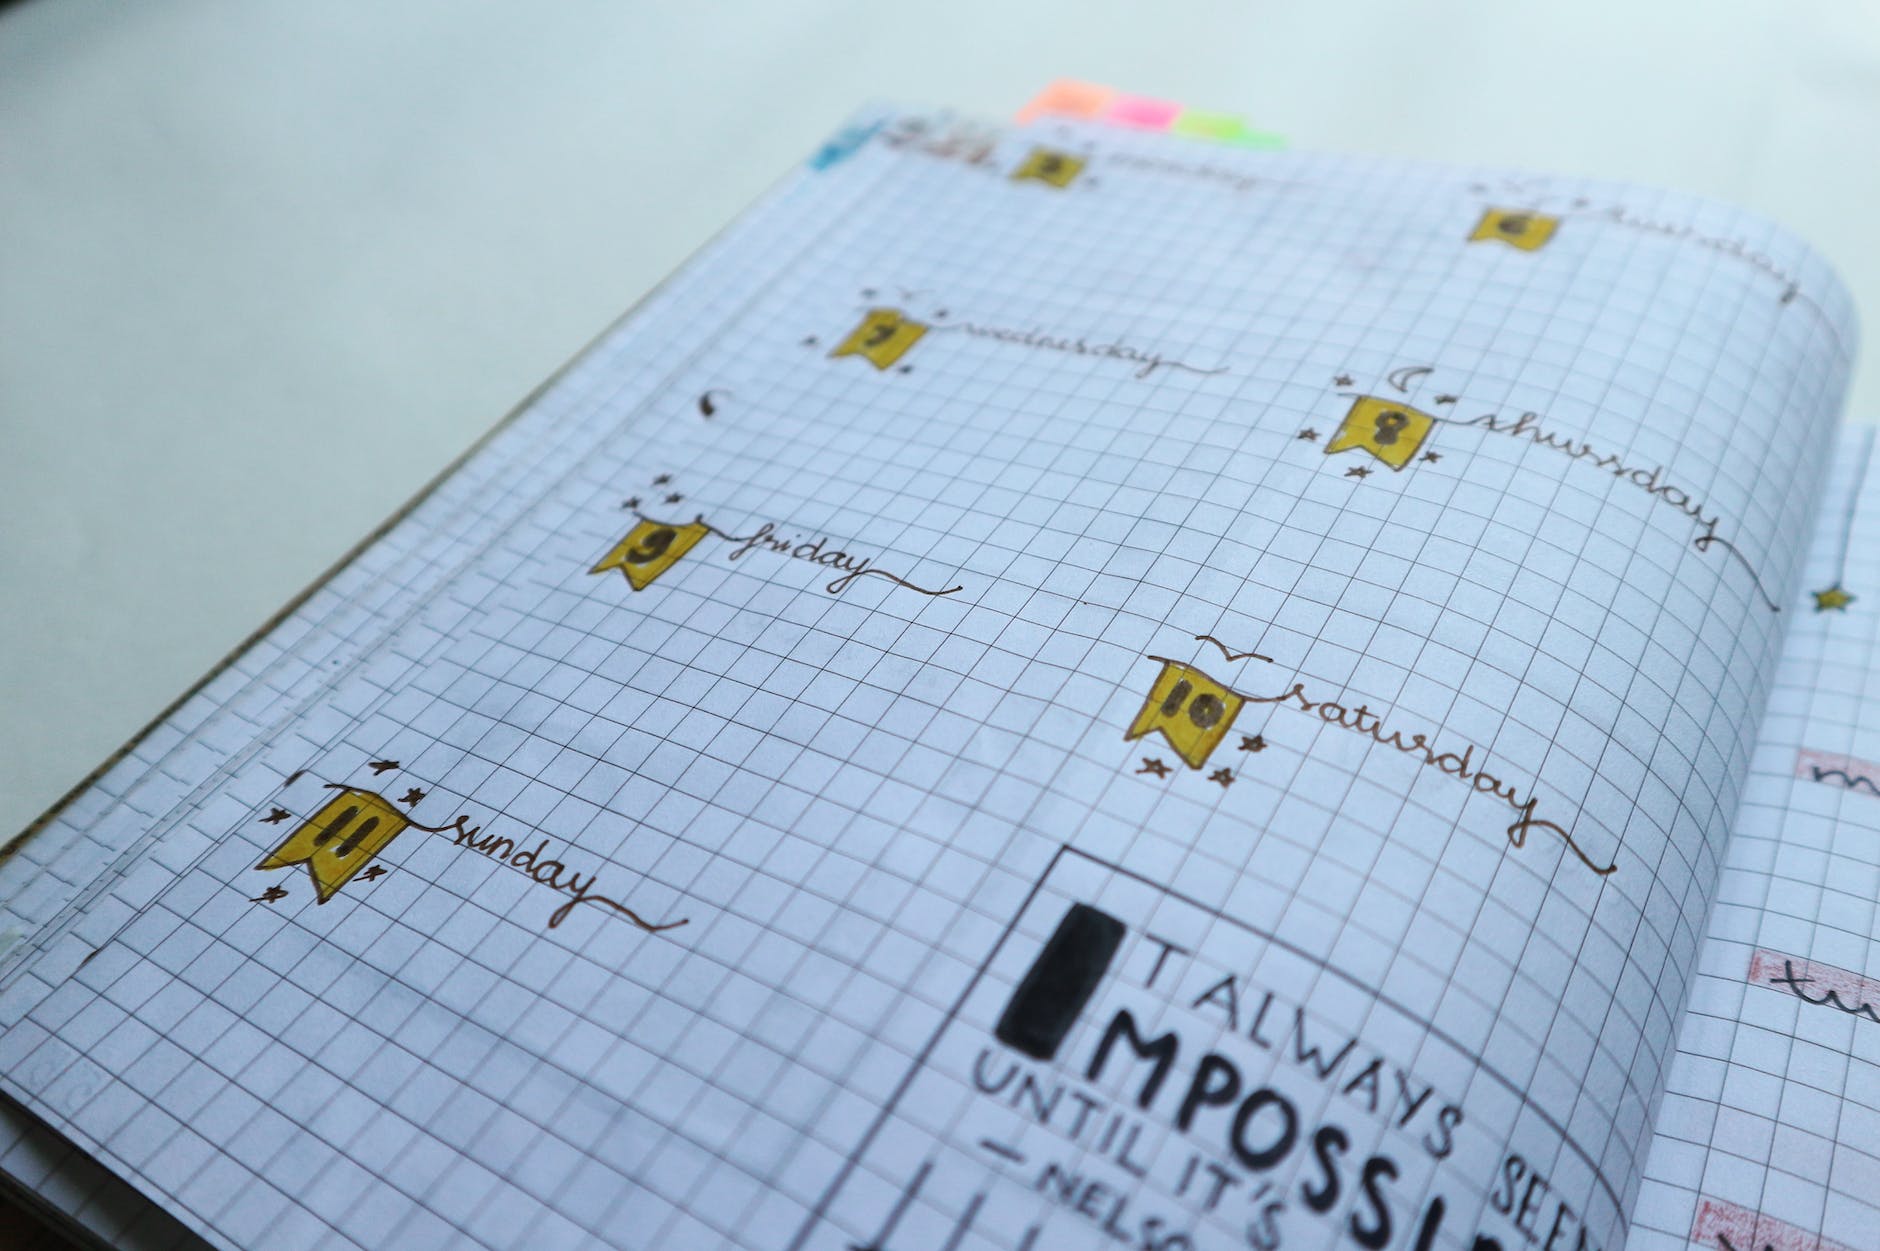 6 tuesday
7 wednesday
8 thursday
9 friday
10 saturday
11 sunday
IT ALWAYS SEE
IMPOSSI
UNTIL IT'S
– NELSO
m
tu